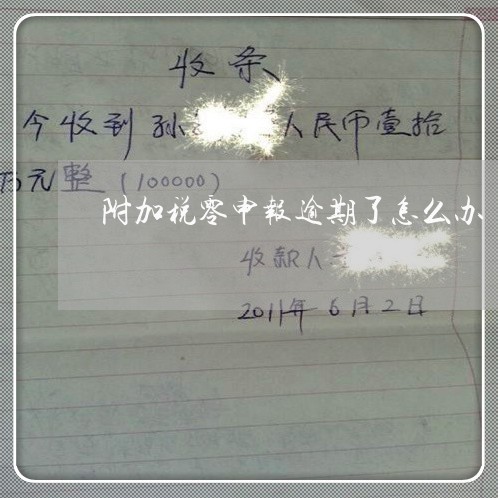 收条
今收到孙 人民币壹拾
万元整(100000)
附加税零申报逾期了怎么办
收款人
2011年6月2日